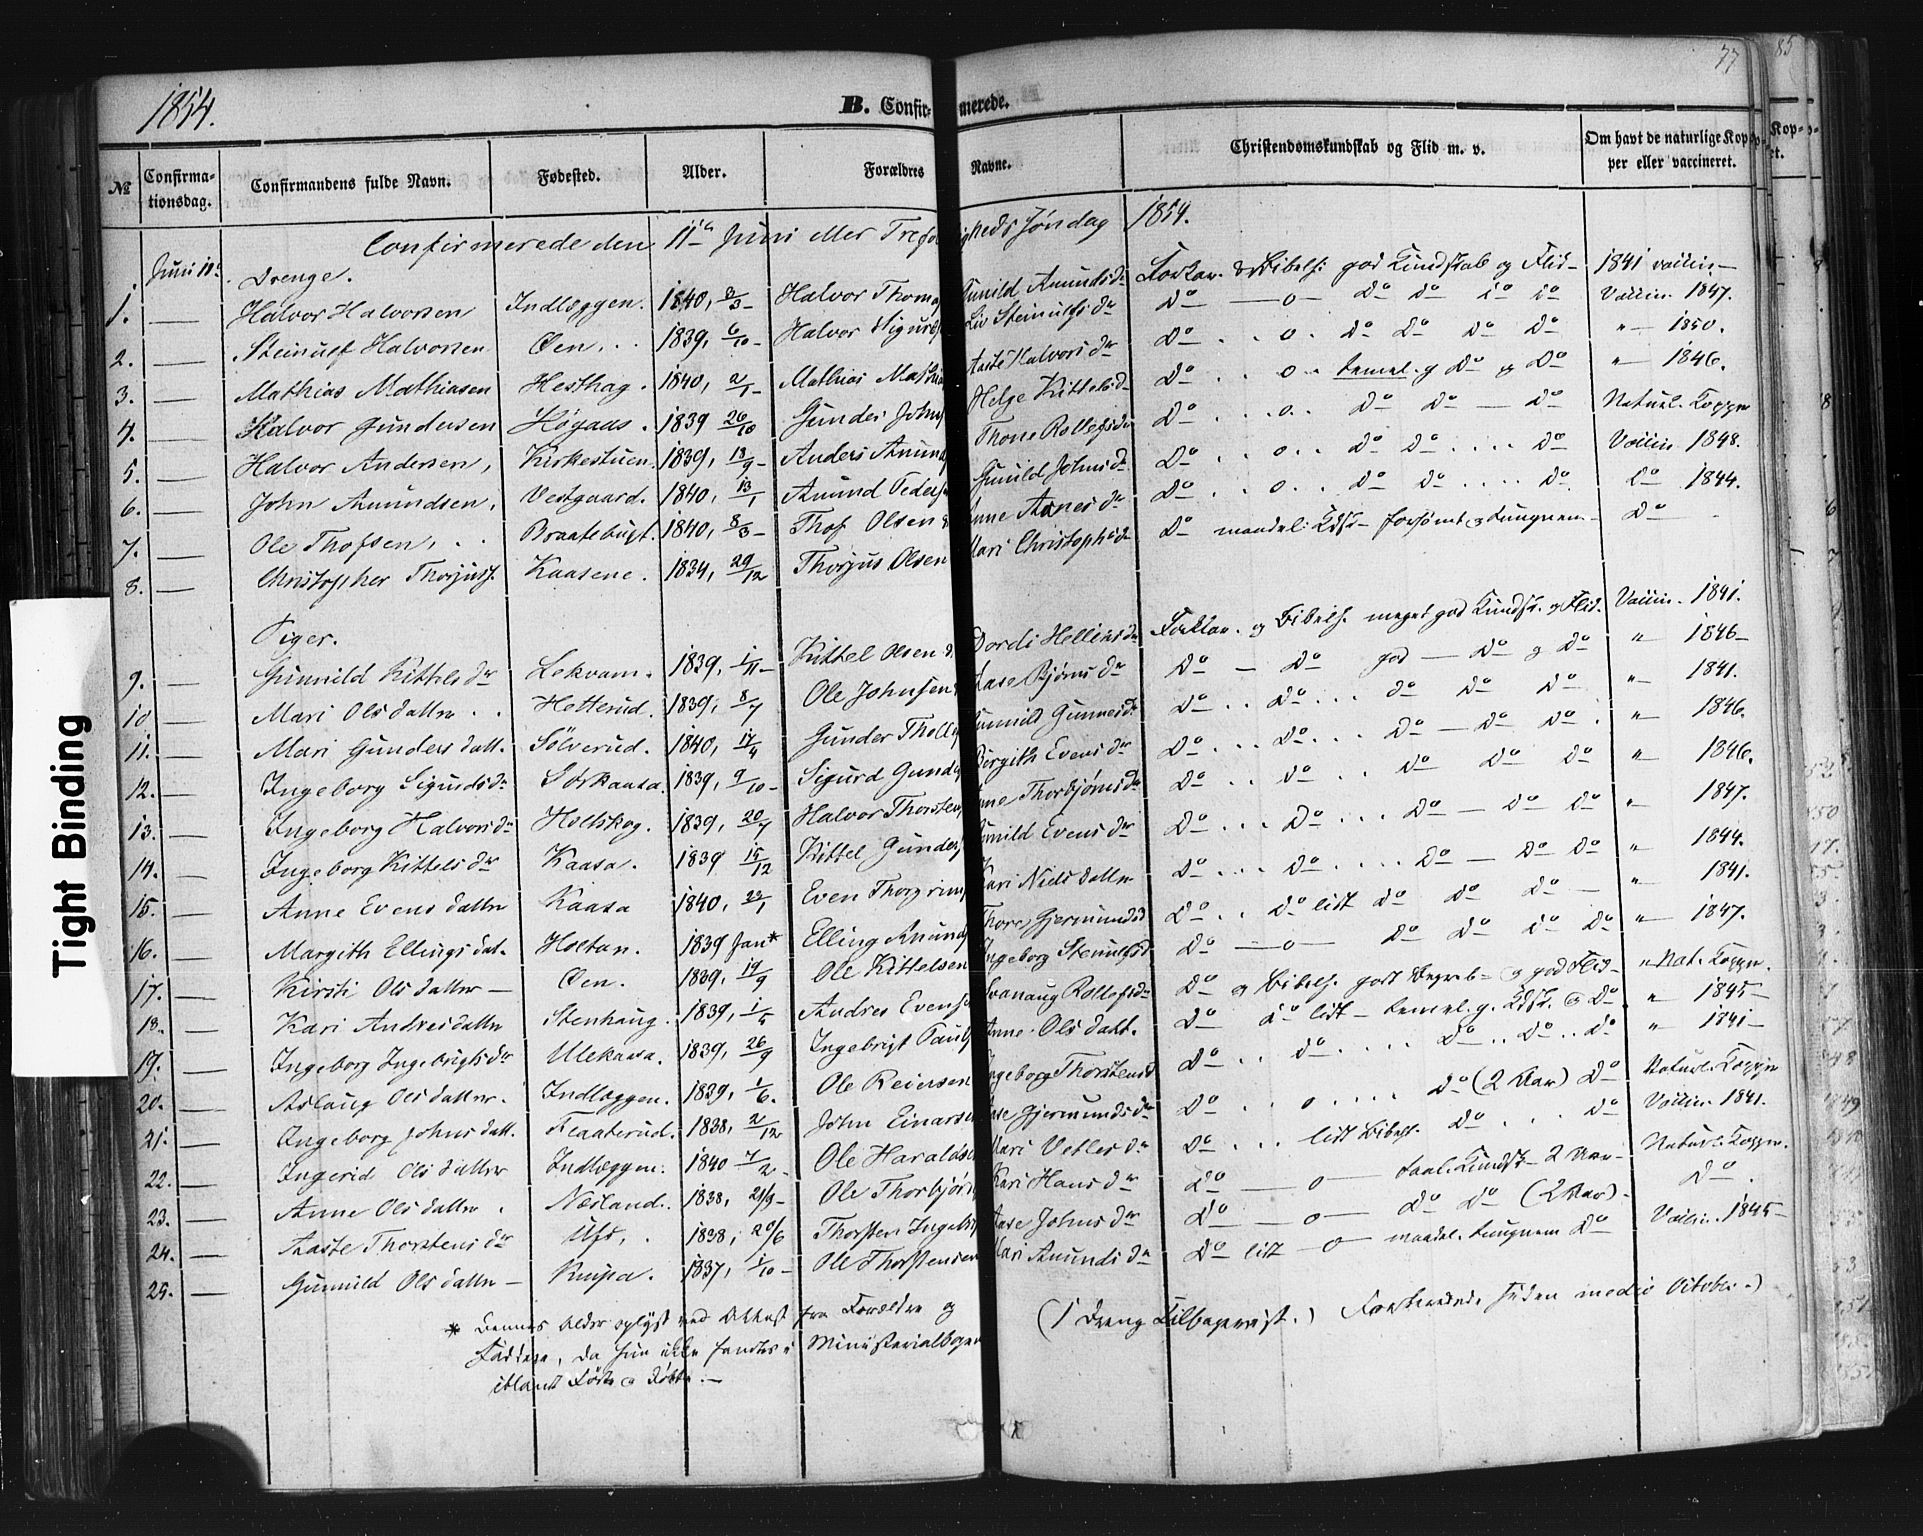 1854.
B. Confir- merede.
77
85
Tight Binding
№ Confirma- tionsdag. Confirmandens fulde Navn. Fødested. Alder. Forældres Navne. Christendomskundskab og Flid m. v. Om havt de naturlige Kop- per eller vaccineret.
Confirmerede den 11te Juni eller Trefoldigheds Søndag 1854.
Juni 11te Drenge.
1. — Halvor Halvorsen Indlæggen. 1840, 8/3 - Halvor Thomas Gunild Amunds dr Forklar. & Bibelh. god Kundskab og Flid - 1841 vaccin. —
2. — Steinulf Halvorsen Øen. . . 1839, 6/10 - Halvor Sigurds Liv Steinulfs dr Do — o — do do do do Vaccin. 1847.
3. — Mathias Mathiasen Hesthag. 1840, 2/1 - Mathias Mathias Aaste Halvors dr Do . . o . do do do do " — 1850.
4. — Halvor Gundersen Høgaas. 1839 26/10 Gunder Johns Helge Kittels d. Do . . o . . temel. g. do g do " — 1846.
5. — Halvor Andersen, Kirkestuen. 1839, 18/9 - Anders Amund Thone Rollefs dr Do . . . o . . do do — do Naturl. Kopper
6. — John Amundsen, Vestgaard. 1840, 13/1 Amund Peders Gunild Johns dr Do . . o . . do do . . . . do Vaccin. 1848.
7. — Ole Thofsen, . . Braatebugt. 1840, 8/3 - Thof Olsen Anne Aanes dr Do . . o . . do do . . . . do do 1844.
8. — Christopher Thorjuss. Kaasene. 1834, 29/12 Thorjus Olsen Mari Christoph. d. Do maadel. Kdsk. forsømt & tungnem — Do —
Piger.
9. — Gunnild Kittels dr Lekvam. 1839, 1/11 - Kittel Olsen Dordi Hellies dr Forklar. og Bibelh. meget god Kundsk. og Flid. Vaccin. 1841.
10 — Mari Olsdatter . . Hetterud. 1839, 8/7 Ole Johnsen Aase Bjørns dr Do — Do god — do g do " 1846 —
11. — Mari Gunders datt. Sølverud. 1840, 17/4 Gunder Tholl Gunnild Gunners dr Do . . Do . . . do do do " 1841.
12. — Ingeborg Sigurds dr Storkaasa. 1839, 9/10 - Sigurd Gunder Bergith Evens dr Do . . . Do . . . do — do do . " 1846.
13. — Ingeborg Halvors dr Holtskog. 1839, 20/7 Halvor Thorsten Anne Thorbjørns dr Do . . do . . do do do " 1846.
14. — Ingeborg Kittels dr Kaasa. 1839 15/12 Kittel Gunders Gunild Evens dr Do . . . Do . . . do — do do " 1847.
15. — Anne Evens datter Kaasa 1840, 23/1 Even Thorgrim Kari Niels datter Do . . . do . . . . do — do do " 1844.
16. — Margith Ellings dat. Holtan. 1839 Jan* Elling Amund Thore Gjermunds d Do . . do lidt do do do — " 1841.
17. — Kirsti Olsdatter — Øen. 1839, 19/9 Ole Kittelsen Ingeborg Steinulfs d. Do — o — do do do do " — 1847.
18. — Kari Andresdatter Stenhaug. 1839, 1/5 Andres Evens Svanaug Rollefs dr Do g Bibelh. godt Begreb - og god Flid - " Nat. Kopper.
19. — Ingeborg Ingebrigts dr Ulekaasa. 1839, 26/9 Ingebrigt Pauls Anne Ols datt. Do do lidt — temel. g. Kdsk. g Do " 1845 —
20. — Aslaug Olsdatter. Indlæggen. 1839, 1/6. Ole Reiersen Ingeborg Thorstens d Do . . do . . . . do . . do . . do " 1841 —
21. — Ingeborg Johns datt. Flaaterud. 1838, 2/12 John Einarsen Aase Gjermunds dr Do . . o . . . . do (2 Aar) do Naturl. Kopper
22. — Ingerid Olsdatter Indlæggen. 1840 7/2 - Ole Haralds Mari Vetles dr Do . . . lidt Bibelh. do . . do Vaccin. 1841.
23. — Anne Olsdatter . Næsland. 1838, 21/9 - Ole Thorbjørns Kari Hans dr Do — o — taal. Kundsk. 2 Aar — Naturl. Kopper.
24. — Aaste Thorstens dr Ufs, . 1838, 20/6 Thorsten Ingebr Aase Johns dr Do — o — do do (2 Aar) - Do .
25. — Gunnild Olsdatter — Knipa. 1837, 1/10 — Ole Thorstensen Mari Amunds dr Do lidt — o — maadel. tungnem Do Vaccin. 1845 —
* Dennes Alder oplyst ved Attest fra Forældre og
Faddere, da hun ikke fandtes i Ministerialbogen
iblandt Fødte og Døbte. —
(1 Dreng Tilbagevist.) Forberedede siden medio October.)